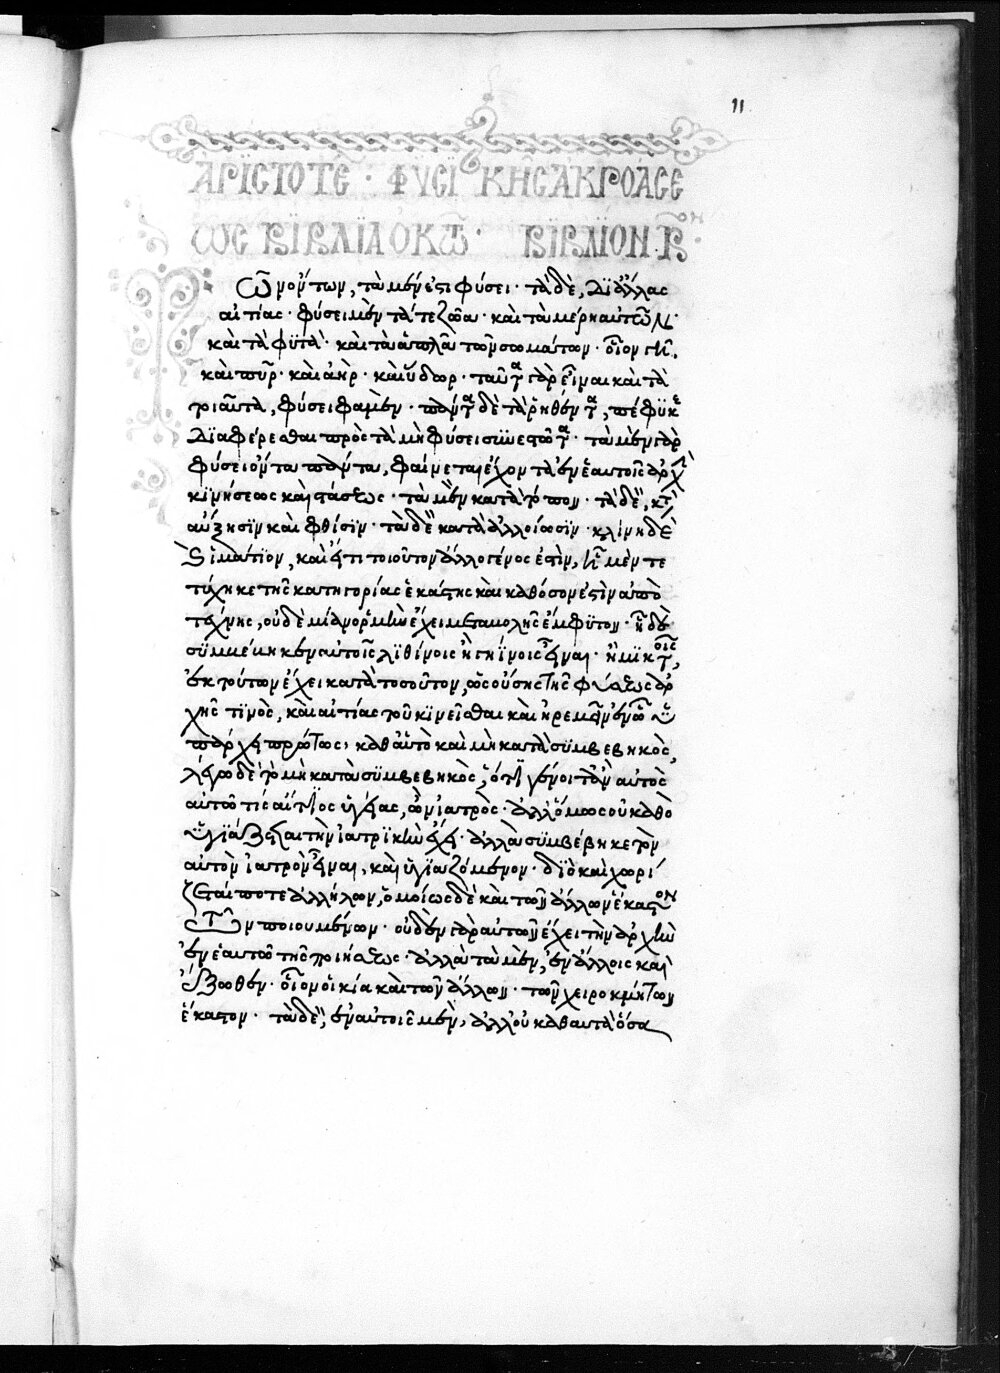 11
ἈΡΙΣΤΟΤΕ · ΦΥΣΙΚΗΣ ἈΚΡΟΆΣΕ
ΩΣ ΒΙΒΛΙΑ ὈΚΤΩ · ΒΙΒΛΙΟΝ · Βον ·
Τῶν ὄντων, τὰ μέν ἐστι φύσει · τὰ δὲ, δι' ἄλλας
αἰτίας · φύσει μὲν τά τε ζῶα · καὶ τὰ μέρη αὐτῶν ·
καὶ τὰ φυτά · καὶ τὰ ἁπλᾶ τῶν σωμάτων · οἷον γῆ.
καὶ πῦρ · καὶ ἀὴρ · καὶ ὕδωρ · ταῦτα γὰρ εἶναι καὶ τὰ
τοιαῦτα, φύσει φαμὲν · πάντα δὲ τὰ ῥηθέντα, πέφυκε
διαφέρεσθαι πρὸς τὰ μὴ φύσει συνεστῶτα · τὰ μὲν γὰρ
φύσει ὄντα πάντα, φαίνεται ἔχοντα ἐν ἑαυτοῖς ἀρχὴν
κινήσεως καὶ στάσεως · τὰ μὲν κατὰ τόπον · τὰ δὲ, κατ'
αὔξησιν καὶ φθίσιν · τὰ δὲ κατὰ ἀλλοίωσιν · κλίνη δὲ
καὶ ἱμάτιον, καὶ εἴ τι τοιοῦτον ἄλλο γένος ἐστὶν, ᾗ μὲν τε
τύχηκε τῆς κατηγορίας ἑκάστης καὶ καθόσον ἐστὶν ἀπὸ
τέχνης, οὐδὲ μίαν ὁρμὴν ἔχει μεταβολῆς ἔμφυτον · ᾗ δὲ
συμβέβηκεν αὐτοῖς λιθίνοις ἢ γηΐνοις εἶναι · ἢ μικτοῖς
ἐκ τούτων ἔχει κατὰ τοσοῦτον, ὡς οὔσης τῆς φύσεως ἀρ
χῆς τινὸς, καὶ αἰτίας τοῦ κινεῖσθαι καὶ ἠρεμεῖν ἐν ᾧ ὑ
πάρχει πρώτως, καθ' αὑτὸ καὶ μὴ κατὰ συμβεβηκὸς,
λέγω δὲ τὸ μὴ κατὰ συμβεβηκὸς, ὅτι γένοιτ' ἂν αὐτὸς
αὑτῶ τὶς αἴτιος ὑγείας, ὢν ἰατρὸς · ἀλλ' ὅμως οὐ καθὸ
ὑγιάζεται τὴν ἰατρικὴν ἔχει · ἀλλὰ συμβέβηκε τὸν
αὐτὸν ἰατρὸν εἶναι, καὶ ὑγιαζόμενον · διὸ καὶ χωρί
ζεταί ποτε ἀλλήλων, ὁμοίως δὲ καὶ τῶν ἄλλων ἕκαστον
τῶν ποιουμένων · οὐδὲν γὰρ αὐτῶν ἔχει τὴν ἀρχὴν
ἐν ἑαυτῶ τῆς ποιήσεως · ἀλλὰ τὰ μὲν, ἐν ἄλλοις καὶ
ἔξωθεν · οἷον οἰκία καὶ τῶν ἄλλων · τῶν χειροκμήτων
ἕκαστον · τὰ δὲ, ἐν αὑτοῖς μὲν, ἀλλ' οὐ καθ' αὑτὰ ὅσα